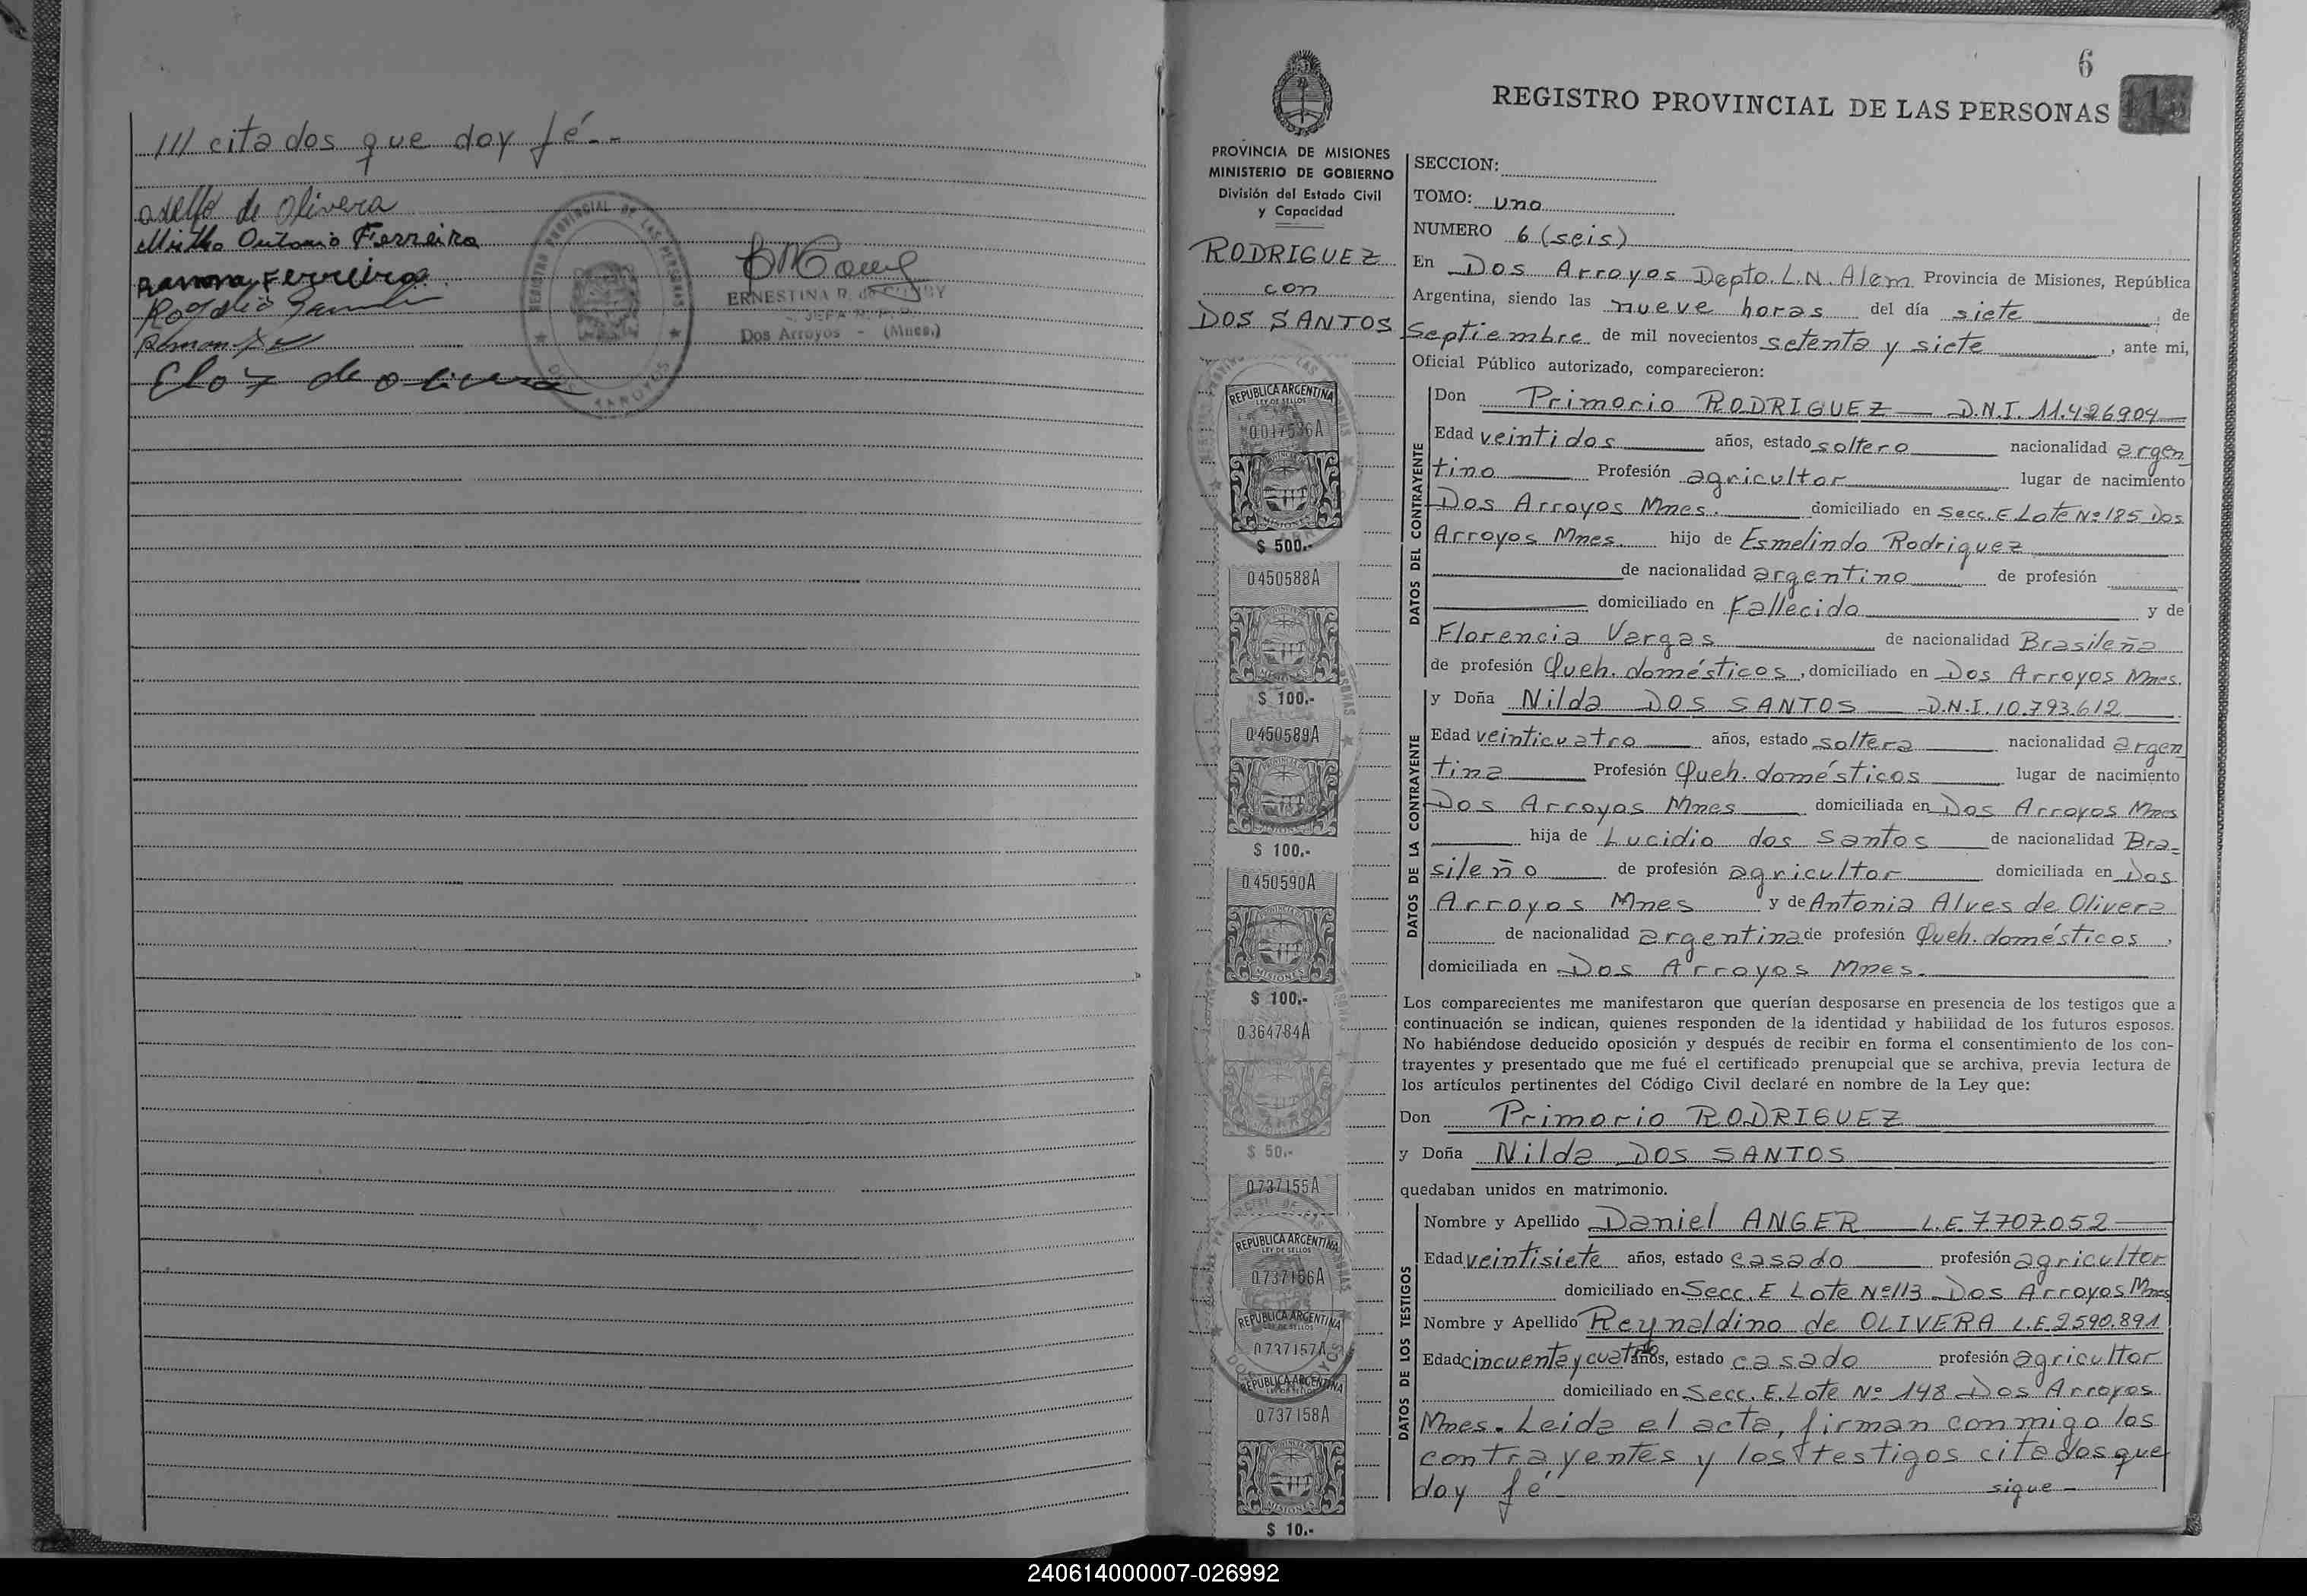 /// citados que doy fé.-
adelfo de olivera
Mirtha Antonio Ferreira
Ramona Ferreira
Rogelio
Eloy de olivera
REGISTRO PROVINCIAL DE LAS PERSONAS
DOS ARROYOS
ERNESTINA R. de
JEFA R. P. P.
Dos Arroyos - (Mnes.)
6
REGISTRO PROVINCIAL DE LAS PERSONAS
PROVINCIA DE MISIONES
MINISTERIO DE GOBIERNO
División del Estado Civil
y Capacidad
RODRIGUEZ
con
DOS SANTOS
REPUBLICA ARGENTINA
LEY DE SELLOS
0017536A
MISIONES
$ 500.-
0.450588A
$ 100.-
0.450589A
MISIONES
$ 100.-
0.450590A
MISIONES
$ 100.-
0.364784A
$ 50.-
0.737155A
REPUBLICA ARGENTINA
LEY DE SELLOS
0.737156A
REPUBLICA ARGENTINA
LEY DE SELLOS
0.737157A
REPUBLICA ARGENTINA
0.737158A
MISIONES
$ 10.-
SECCION:
TOMO: uno
NUMERO 6 (seis)
En Dos Arroyos Depto. L.N. Alem Provincia de Misiones, República
Argentina, siendo las nueve horas del día siete, de
Septiembre de mil novecientos setenta y siete, ante mi,
Oficial Público autorizado, comparecieron:
DATOS DEL CONTRAYENTE
Don Primorio RODRIGUEZ — D.N.I. 11.426904
Edad veintidos años, estado soltero nacionalidad argen
tino Profesión agricultor lugar de nacimiento
Dos Arroyos Mnes. domiciliado en Secc. E Lote Nº 185 Dos
Arroyos Mnes. hijo de Esmelindo Rodriguez
de nacionalidad argentino de profesión
domiciliado en Fallecido y de
Florencia Vargas de nacionalidad Brasileña
de profesión Queh. domésticos, domiciliado en Dos Arroyos Mnes.
DATOS DE LA CONTRAYENTE
y Doña Nilda DOS SANTOS — D.N.I. 10.793.612
Edad veinticuatro años, estado soltera nacionalidad argen
tina Profesión Queh. domésticos lugar de nacimiento
Dos Arroyos Mnes domiciliada en Dos Arroyos Mnes
hija de Lucidio dos Santos de nacionalidad Bra-
sileño de profesión agricultor domiciliada en Dos
Arroyos Mnes y de Antonia Alves de Olivera
de nacionalidad argentina de profesión Queh. domésticos,
domiciliada en Dos Arroyos Mnes.
Los comparecientes me manifestaron que querían desposarse en presencia de los testigos que a
continuación se indican, quienes responden de la identidad y habilidad de los futuros esposos.
No habiéndose deducido oposición y después de recibir en forma el consentimiento de los con-
trayentes y presentado que me fué el certificado prenupcial que se archiva, previa lectura de
los artículos pertinentes del Código Civil declaré en nombre de la Ley que:
Don Primorio RODRIGUEZ
y Doña Nilda DOS SANTOS
quedaban unidos en matrimonio.
DATOS DE LOS TESTIGOS
Nombre y Apellido Daniel ANGER — L.E 7.707.052
Edad veintisiete años, estado casado profesión agricultor
domiciliado en Secc. E Lote Nº 113 Dos Arroyos Mnes
Nombre y Apellido Reynaldino de OLIVERA L.E. 2590.891
Edad cincuenta y cuatro años, estado casado profesión agricultor
domiciliado en Secc. E. Lote Nº 148 Dos Arroyos
Mnes. Leida el acta, firman conmigo los
contrayentes y los testigos citados que
doy fé — sigue -
240614000007-026992